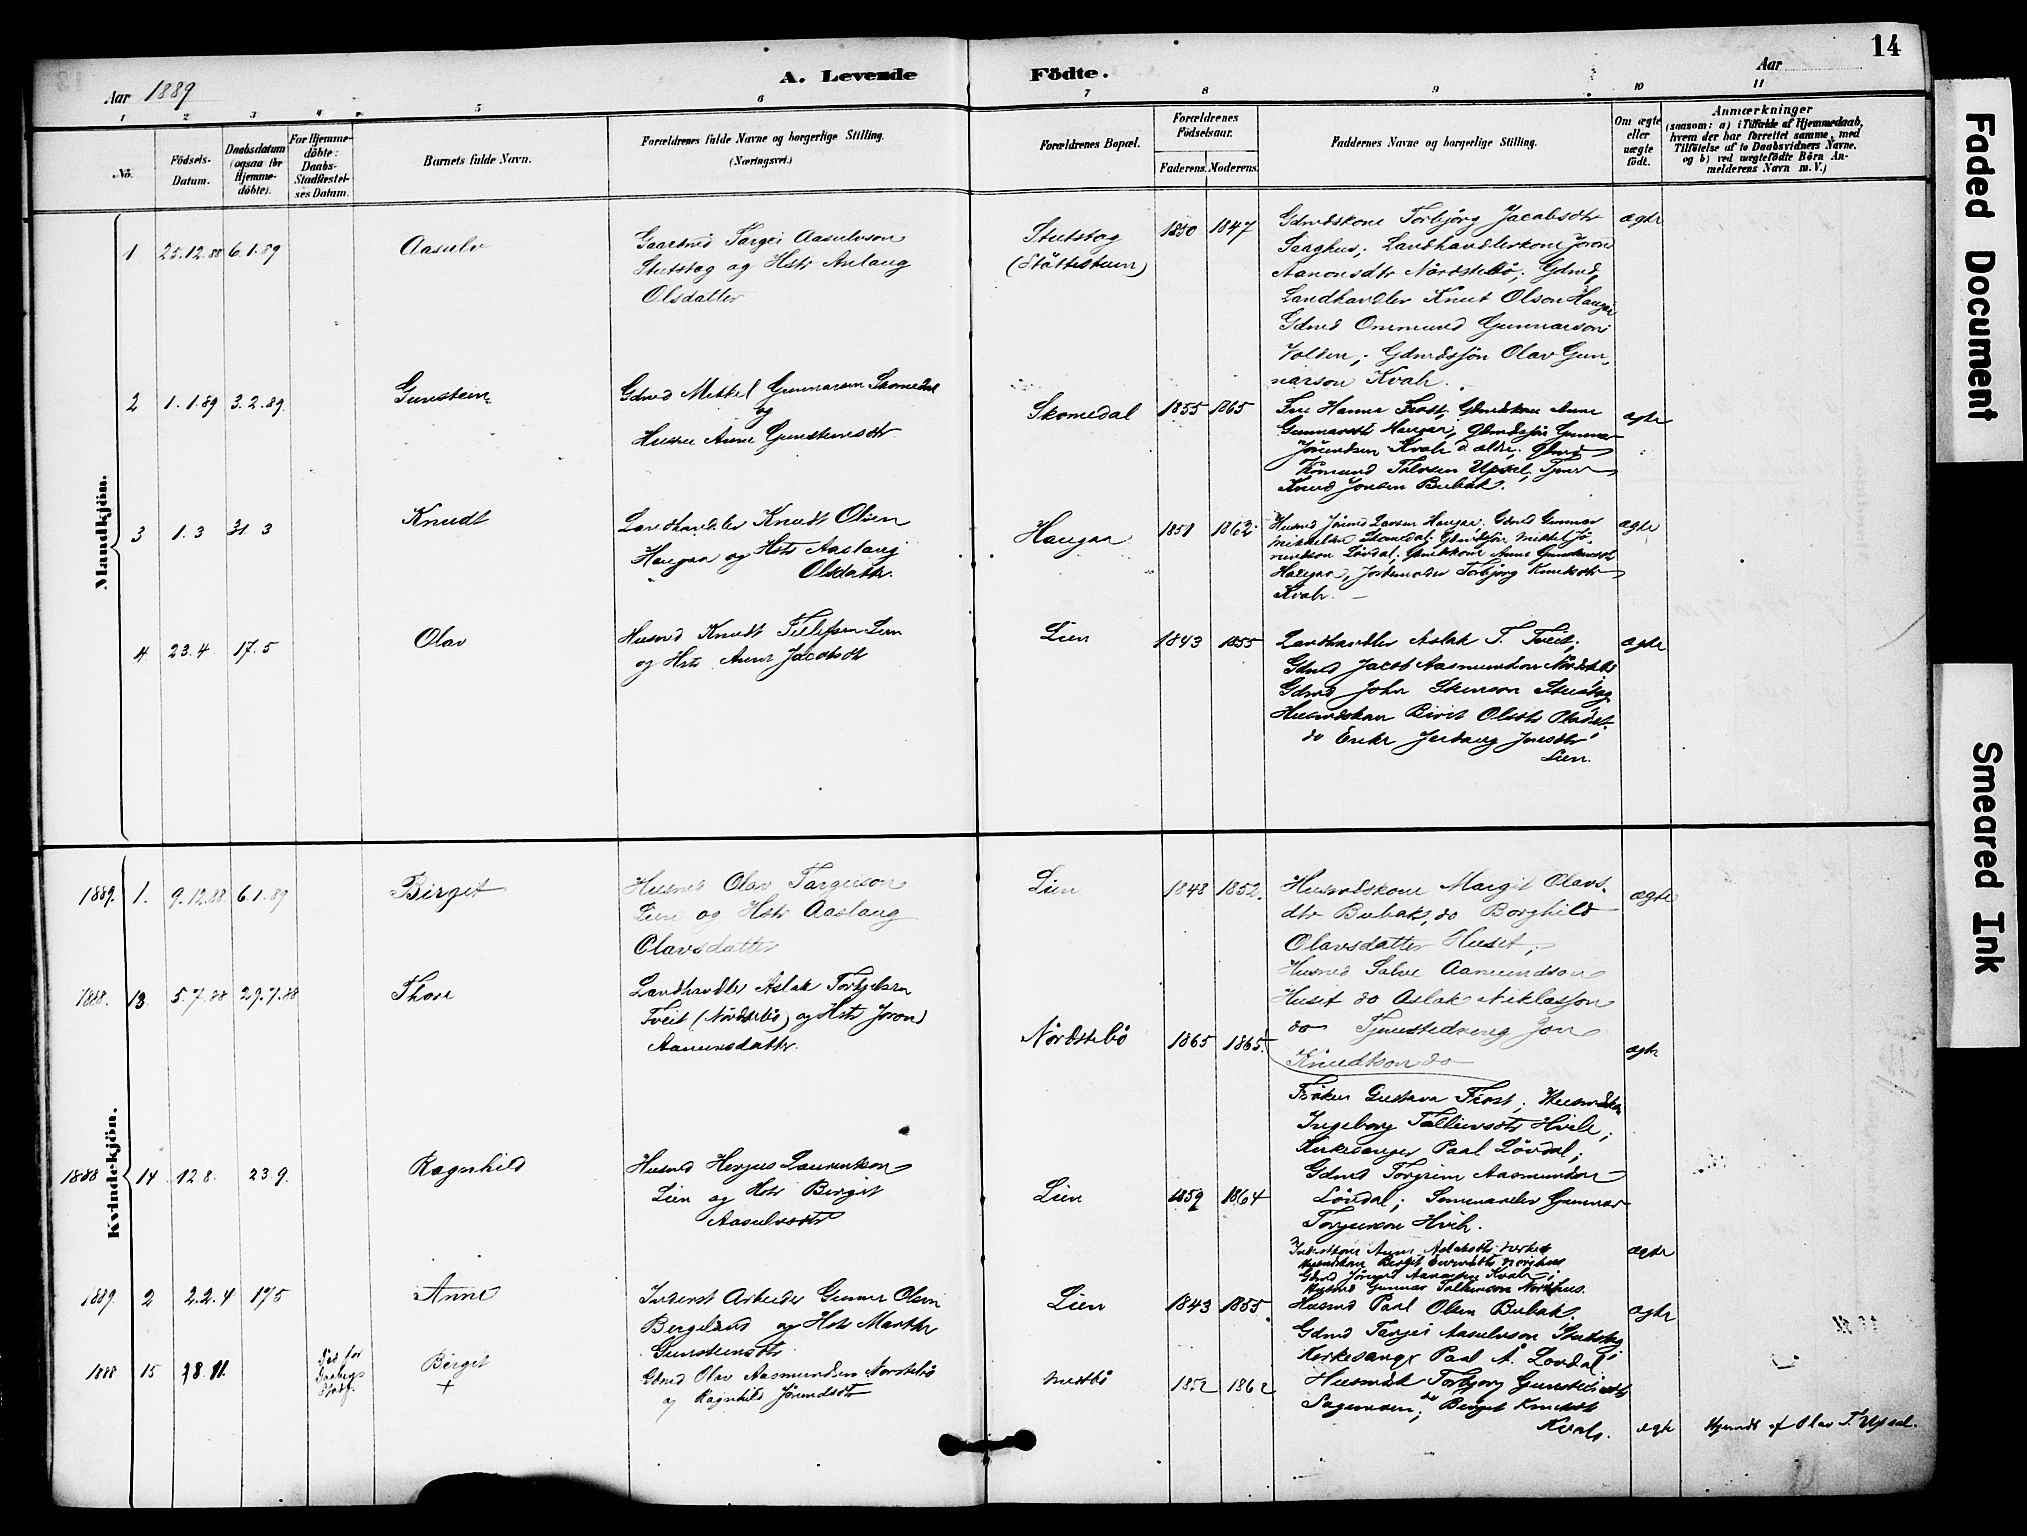 14
Aar 1889
A. Levende Födte.
Aar
1 2 3 4 5 6 7 8 9 10 11
No.
Födsels-
Datum.
Daabsdatum
(ogsaa for
Hjemme-
döbte).
For Hjemme-
döbte:
Daabs-
Stadfæstel-
ses Datum.
Barnets fulde Navn.
Forældrenes fulde Navne og borgerlige Stilling.
(Næringsvei.)
Forældrenes Bopæl.
Forældrenes
Födselsaar.
Faderens. Moderens.
Faddernes Navne og borgerlige Stilling.
Om ægte
eller
uægte
födt.
Anmærkninger
(saasom: a) i Tilfælde af Hjemmedaab,
hvem der har forrettet samme, med
Tilföielse af to Daabsvidners Navne.
og b) ved uægtefödte Börn An-
melderens Navn m. V.)
Mandkjön.
1 25.12.88 6.1.89
Aasulv
Gaardmd Targei Aasulvson
Stutstog og Hstr Aslaug
Olsdatter
Stutstog
(Støttestuen)
1850 1847
Gdmdskone Torbjörg Jacobsdtr
Landhandlerkone Joron
Aanonsdtr Nordstebö; Gdmd,
Landhandler Knut Olson Haugaa
Gdmd Ommund Gunnarson
Volden; Gdmdssøn Olav Gun-
narson Kvale.
ægte
2 1.1.89 3.2.89
Gunstein
Gdmd Mikkel Gunnarsen Skomedal
og
Hustru Anne Gunsteinsdtr
Skomedal
1855 1865
Frue Hanna Frost, Gdmdskone Anne
Gunnarsdtr Haugaa, Gdmdssøn Gunnar
Jörundsen Kvale d. ældre; Gdmd
Tolvsen Upsal,
Knud Jonsen Bubak.
ægte
3 1.3 31.3
Knudt
Landhandler Knudt Olsen
Haugaa og Hstr Aaslaug
Olsdatter.
Haugaa
1851 1862
Husmd Jörund Larsen Haugaa, Gdmd Gunnar
Mikkelsen Skomedal; Gdmdssøn Mikkel Jö-
rundson Lövdal; Anne Gunsteinsdtr
Haugaa, Jordemoder Torbjörg Knutsdtr
Kvale.
ægte
4 23.4 17.5
Olav
Husmd Knudt Tellefsen Lien
og Hstr Anne Jacobsdtr
Lien
1843 1855
Landhandler Aslak T. Tveit;
Gdmd Jacob Aasmundson Nordstebö
Gdmd John Stenson Stutstog
Husmdskone Birit Olsdtr
do Enke Jonsdtr
Lien.
ægte
Kvindekjön.
1889. 1. 9.12.88 6.1.89
Birget
Husmd Olav Targeison
Lien og Hstr Aaslaug
Olavsdatter
Lien
1848 1852.
Husmdskone Margit Olavs-
dtr Bubak, do Borghild
Olavsdatter Huset;
Husmd Salve Aamundson
Huset do Aslak Niklasson
do Tjenestedreng Jon
Knudtson do
ægte
1888. 13 5.7.88 29.7.88
Thore
Landhandler Aslak Torbjelsen
Tveit (Nordstebö) og Hstr Joron
Aanonsdatter.
Nordstebö
1865 1865.
ægte
Fröken Gustava Frost; Husmdskone
Ingeborg Tallievsdtr Hvile;
Kirkesanger Paal Lövdal;
Gdmd Torgrim Aasmundsen
Löndal; Gunnar
Torgeirson Hvile.
1888 14 12.8. 23.9.
Ragnhild
Husmd Herjus Laurentson
Lien og Hstr Birget
Aasulvsdtr
Lien
1859 1864
Anne Aslaksdtr
Husmdskone Birget
Gdmd Jörund Aanonsen Kvale;
Husmd Gunnar Tallevson Nordhus.
ægte
1889. 2 22.4 17/5
Anne
Inderst Arbeider Gunnar Olsen
Bergeland og Hstr Marthe
Gunsteinsdtr
Lien
1843 1855
Husmd Paal Olsen Bubak.
Gdmd Targei Aasulvson Stutstog
Kirkesanger Paal A. Lövdal
Torbjörg Gunsteinsdtr
do Birget Knudsdt
Kvale.
ægte
1888 15 28.11.
Birget
+
Gdmd Olav Aasmundsen Nordstebö
og Ragnhild Jörundsdtr
1852 1862
ægte
Hjemdt af Olav T. Upsal.
Faded Document
Smeared Ink